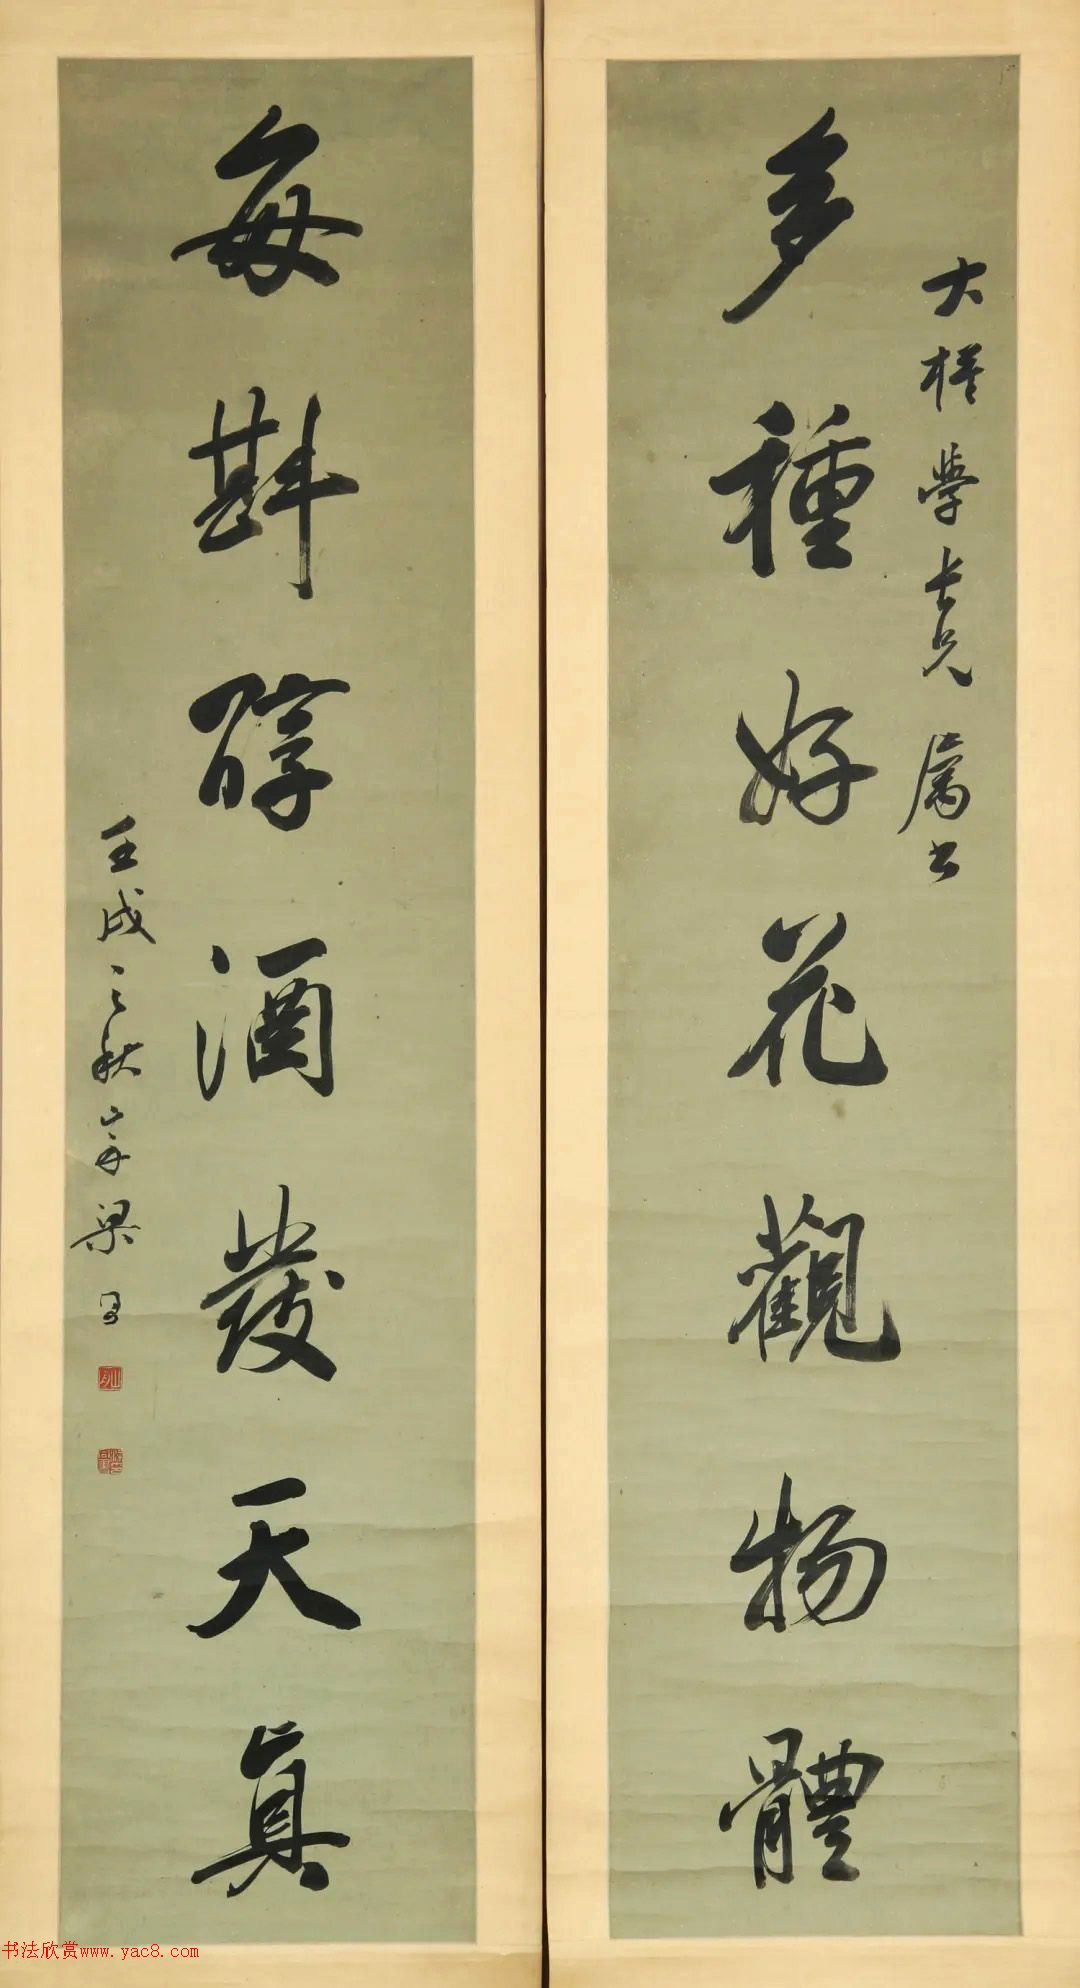 大樸學長兄屬書
多種好花觀物體
每斟醇酒發天真
壬戌之秋山舟梁同書
山舟
书法欣赏www.yac8.com